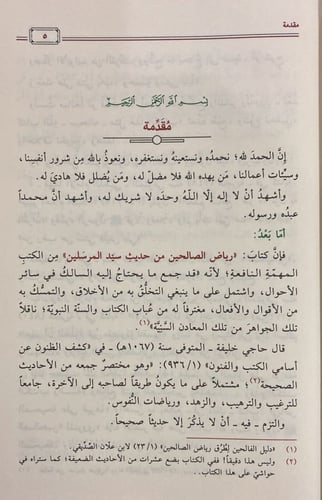 مقدمة
٥
بِسْمِ اللَّهِ الرَّحْمَنِ الرَّحِيمِ
مُقَدِّمة
إنَّ الحمدَ لله؛ نحمدُه ونستعينهُ ونستغفره، ونعوذُ بالله مِن شرور أنفسِنا،
وسيِّئات أعمالنا، مَن يهده الله فلا مضلّ له، ومَن يُضلل فلا هاديَ له.
وأشهدُ أنْ لا إله إلّا اللهُ وحدَه لا شريك له، وأشهد أنَّ محمداً
عبدُه ورسوله.
أمّا بَعْدُ:
فإنَّ كتابَ: «رياض الصالحين من حديثِ سيِّد المرسَلين» مِن الكتبِ
المهمّةِ النافعةِ؛ لأنّه «قد جمع ما يحتاجُ إليه السالكُ في سائر
الأحوال، واشتمل على ما ينبغي التخلُّق به من الأخلاق، والتمسُّك به
من الأقوال والأفعال، مغترفاً له من عُباب الكتاب والسنّة النبويّة؛ ناقلاً
تلك الجواهرَ من تلك المعادن السَّنِيَّة»(١).
قال حاجي خليفة ـ المتوفى سنة (١٠٦٧هـ) ـ في «كشف الظنون عن
أسامي الكتب والفنون» (٩٣٦/١): «وهو مختصرٌ جمعه من الأحاديثِ
الصحيحة(٢)؛ مشتملاً على ما يكونُ طريقاً لصاحبه إلى الآخرة، جامعاً
للترغيب والترهيب، والزهد، ورياضات النُّفوس.
والتزم ـ فيه ـ أنْ لا يذكُرَ إلا حديثاً صحيحاً.
(١) «دليل الفالحين لِطُرُق رياض الصالحين» (٢٣/١) لابن علّان الصِّدِّيقي.
(٢) وليس هذا دقيقاً! ففي الكتاب بضع عشرات من الأحاديث الضعيفة؛ كما ستراه في
حواشيّ على هذا الكتاب.